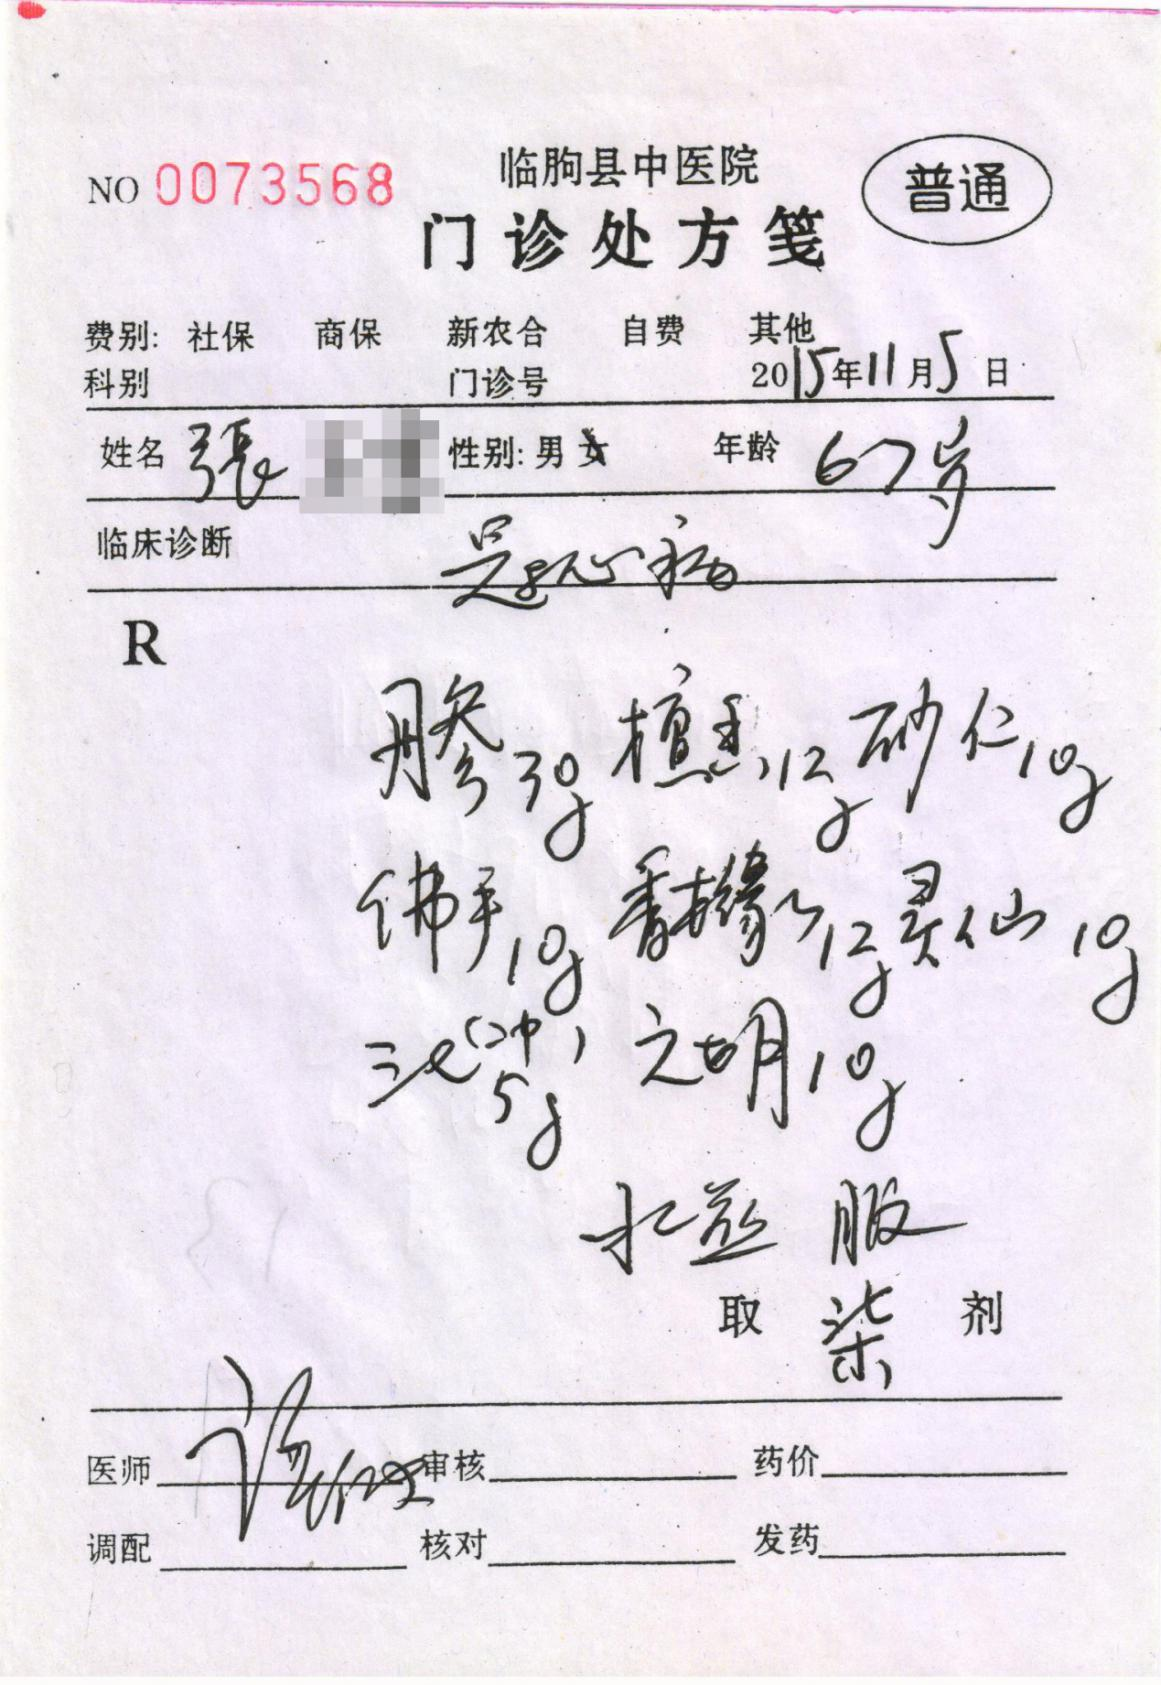 NO 0073568
临朐县中医院
普通
门诊处方笺
费别: 社保 商保 新农合 自费 其他
科别 门诊号 2015年11月5日
姓名 張 性别: 男 女 年龄 67岁
临床诊断 冠心病
R
丹参30g 檀香12g 砂仁10g
佛手10g 香橼12g 灵仙10g
三七(冲)5g 元胡10g
水煎服
取 柒 剂
医师 审核 药价
调配 核对 发药